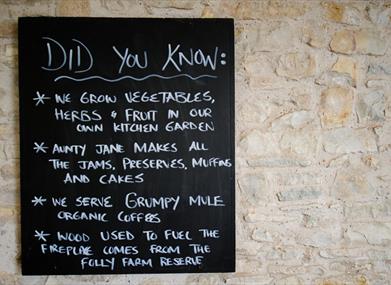 DID YOU KNOW:
* WE GROW VEGETABLES,
HERBS & FRUIT IN OUR
OWN KITCHEN GARDEN
* AUNTY JANE MAKES ALL
THE JAMS, PRESERVES, MUFFINS
AND CAKES
* WE SERVE GRUMPY MULE
ORGANIC COFFEES
* WOOD USED TO FUEL THE
FIREPLACE COMES FROM THE
FOLLY FARM RESERVE